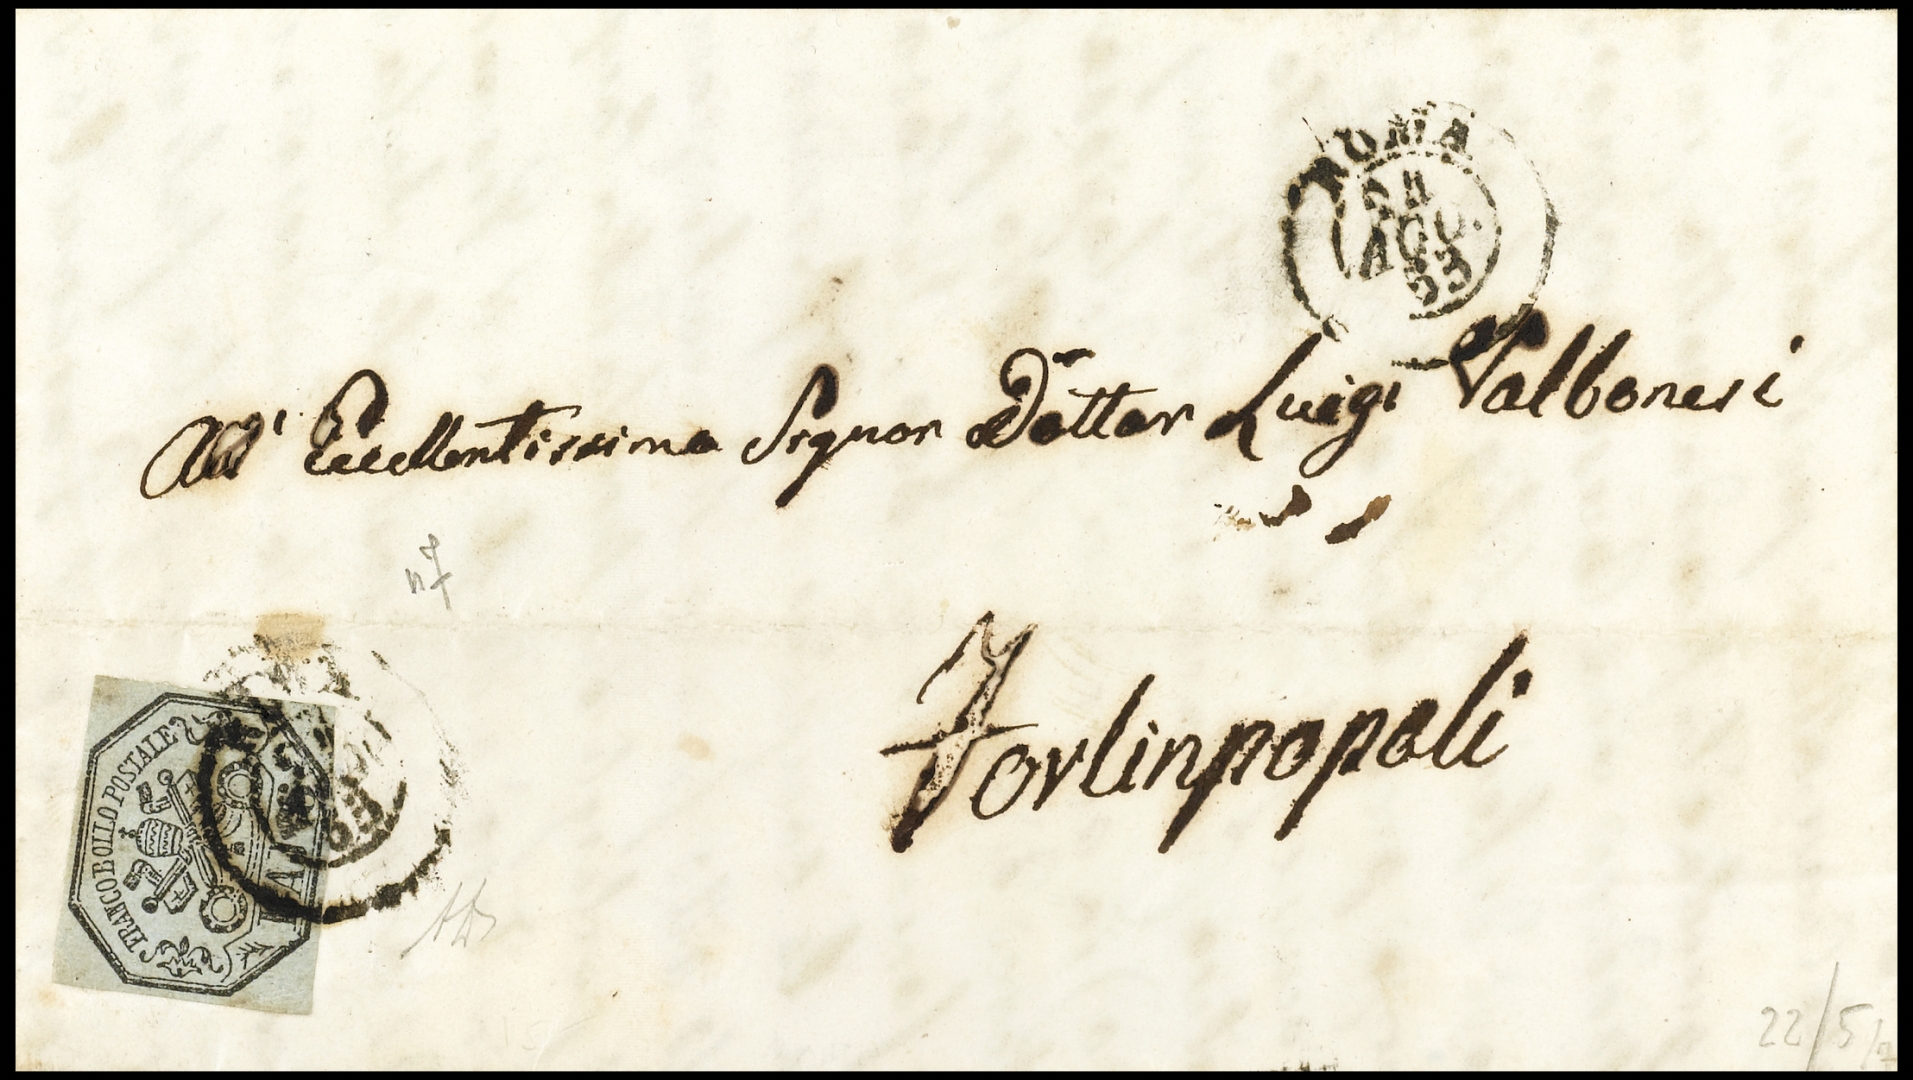 ROMA
AGO.
All' Eccellentissimo Signor Dottor Luigi Valbonesi
n 7
Forlinpopoli
FRANCO BOLLO POSTALE
22/5/7